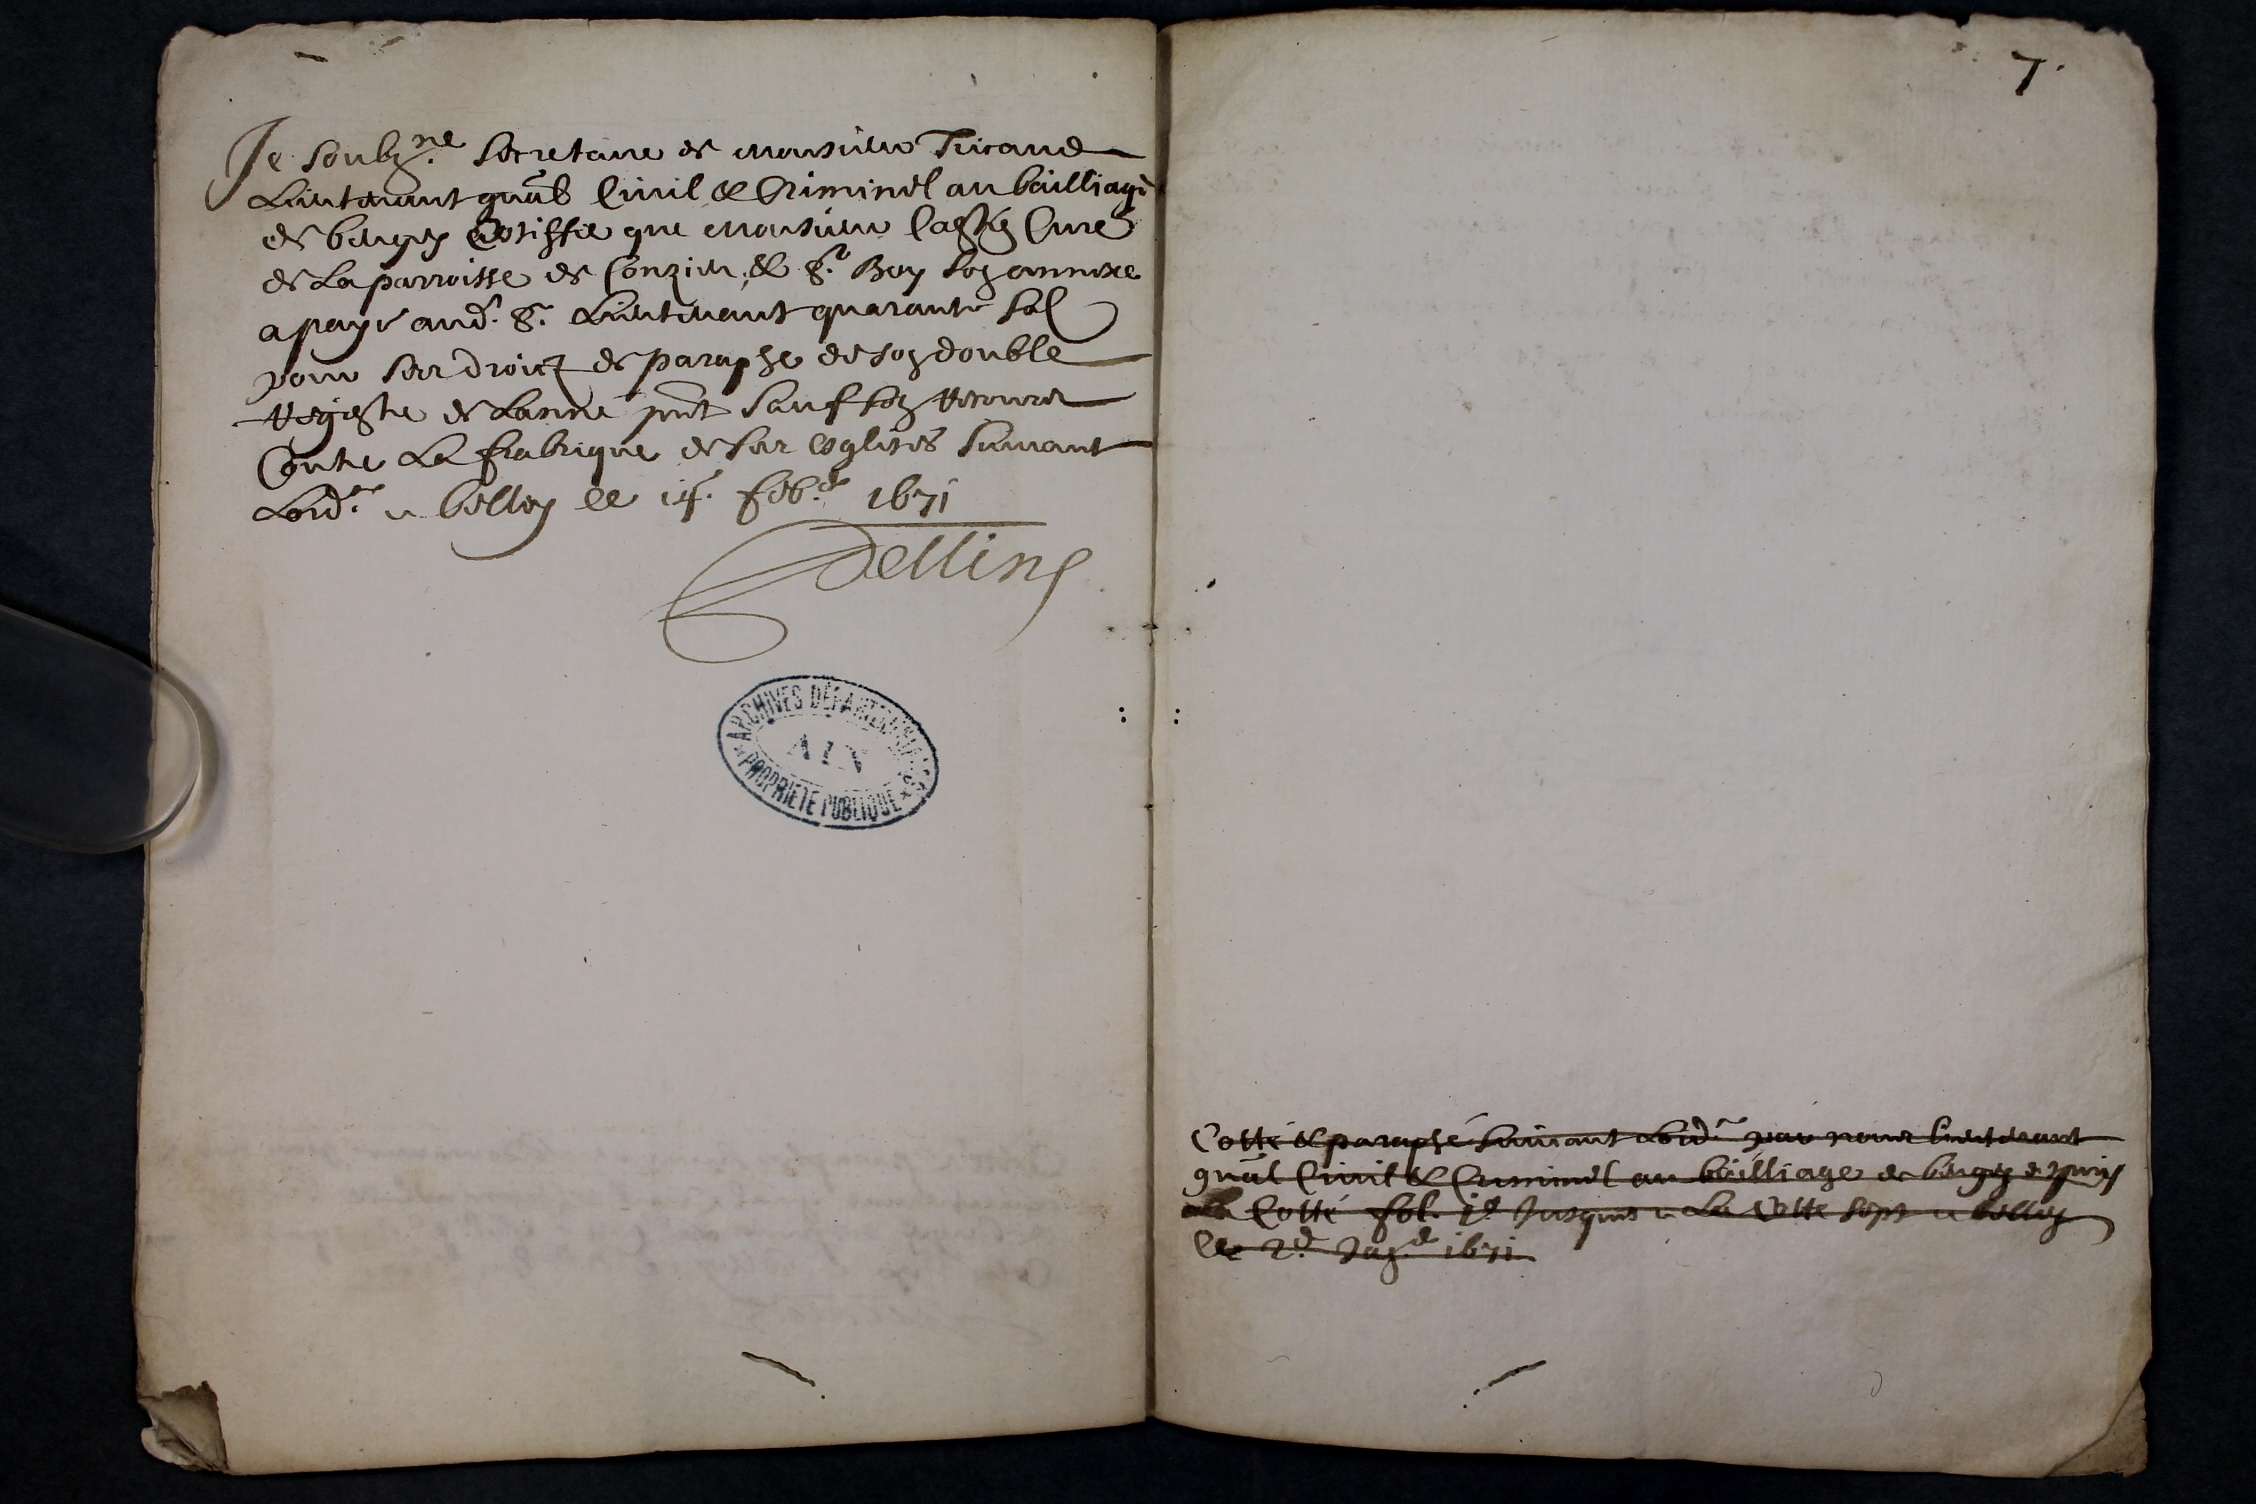 Je soubz.ne secretaire de monsieur Tricaud
Lieutenant gnal Civil & Criminel au bailliage
de bugey Certiffie que monsieur Curé
de La parroisse de Conzieu & St. Boy son annexe
a payé aud. Sr. Lieutenant quarante sol
pour ses droict de paraphe de son double
Registre de Lannée pnt sauf son recours
Contre La fabrique de ses esglises suivant
Lord.ce a belley le 14e. feb.er 1671
Dellin
ARCHIVES DÉPARTEMENTALES
AIN
PROPRIÉTÉ PUBLIQUE
7.
Cotté & paraphé suivant Lord.ce par nous Lieutenant
gnal Civil & Criminel au bailliage de bugey depuis
la Cotté fol. 1er Jusques a La Cotte sept a belley
le 2d. Jan.er 1671